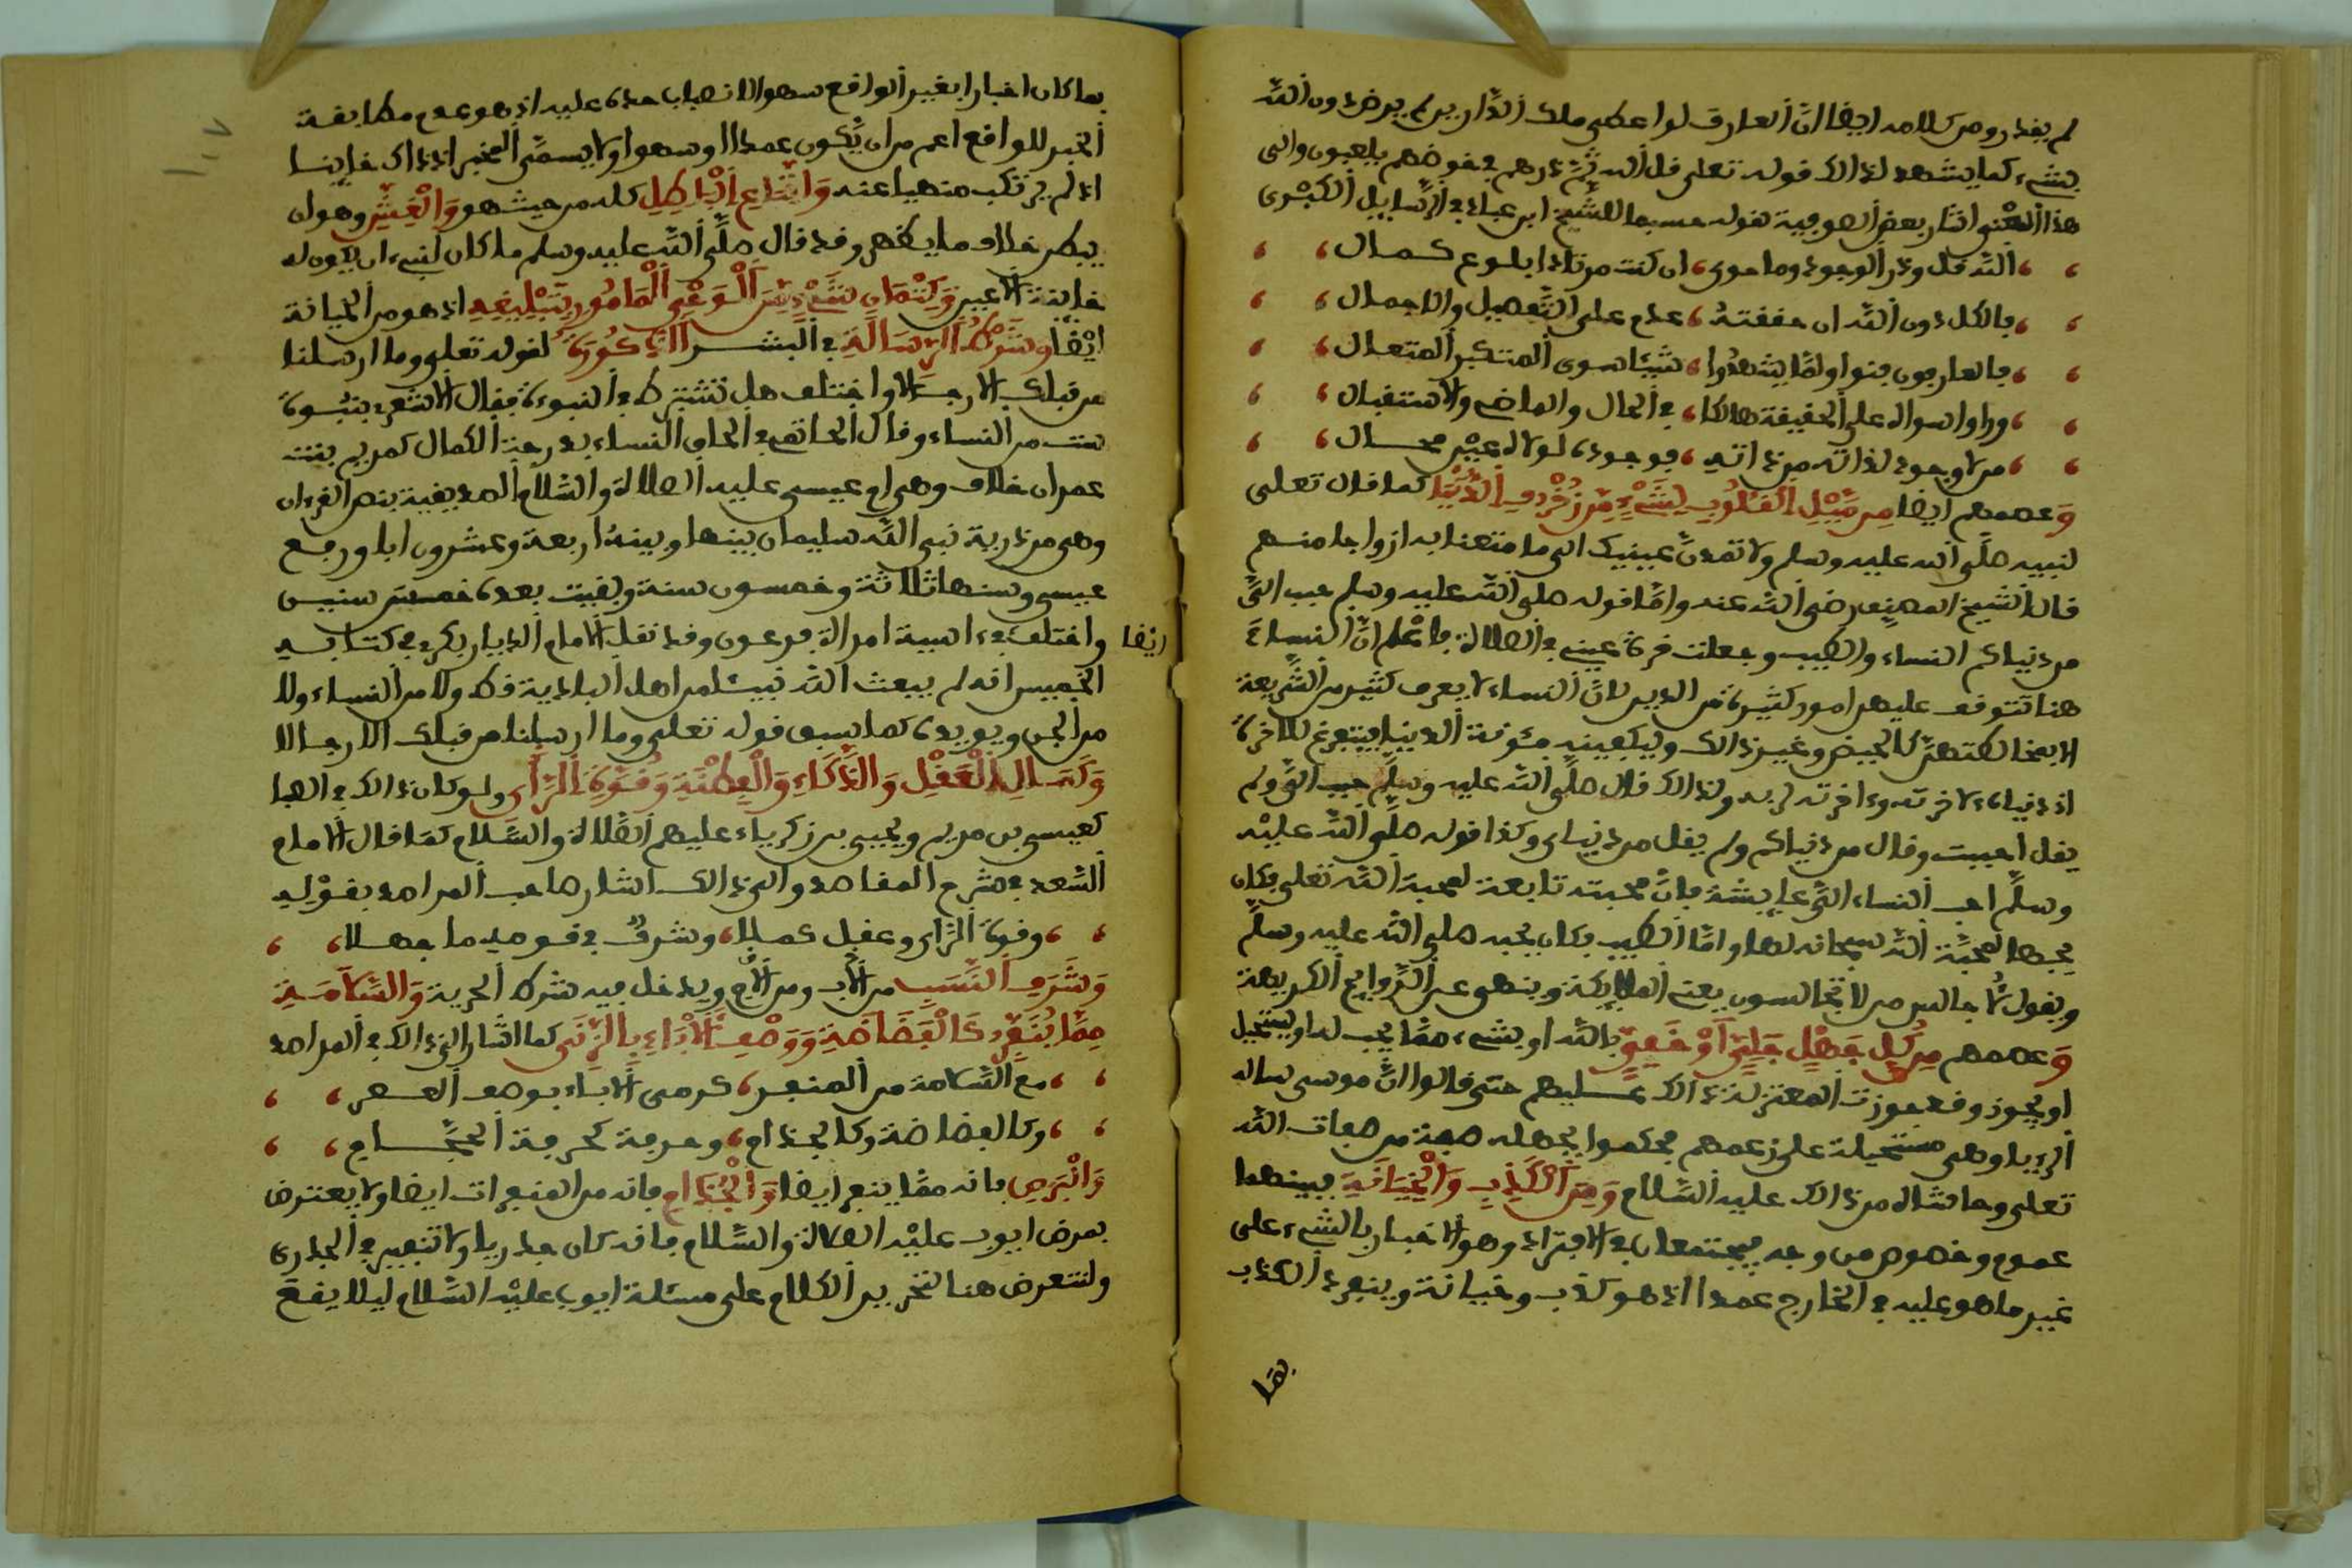 لم يقدر ومن كلامه ايضا ان العارف لو اعطى ملك الدارين لم يرض دون الله
بشيء كما يشهد لذالك قوله تعلى قل الله ثم ذرهم في خوضهم يلعبون والى
هذا المعنى اشار بعض الصوفية بقوله حسبما للشيخ ابن عباد في الرسايل الكبرى
الله قل وذر الوجود وما حوى، ان كنت مرتادا بلوغ كمال
فالكل دون الله ان حققته، عدم على التفصيل والاجمال
فالعارفون فنوا ولما يشهدوا، شيئا سوى المتكبر المتعال
وراوا سواه على الحقيقة هالكا، في الحال والماضي والاستقبال
من لا وجود لذاته من ذاته، فوجوده لولاه عين محال
وعصمهم ايضا من ميل القلوب لشيء من زخرف الدنيا كما قال تعلى
لنبيه صلى الله عليه وسلم ولا تمدن عينيك الى ما متعنا به ازواجا منهم
قال الشيخ المصنف رضي الله عنه واما قوله صلى الله عليه وسلم حبب الي
من دنياكم النساء والطيب وجعلت قرة عيني في الصلاة فاعلم ان النساء
هنا تتوقف عليهن امور كثيرة من الدين لان النساء لا يعرف كثير من الشريعة
الا بمخالطتهن كالحيض وغير ذالك وليكفينه مئونة الدنيا فيتفرغ للاخرة
اذ دنياه لاخرته وءاخرته لربه ولذالك قال صلى الله عليه وسلم حبب الي ولم
يقل احببت وقال من دنياكم ولم يقل من دنياي وكذا قوله صلى الله عليه
وسلم احب النساء الي عايشة فان محبته تابعة لمحبة الله تعلى فكان
يحبها لمحبة الله سبحانه لها واما الطيب فكان يحبه صلى الله عليه وسلم
ويقول لاجالس من لا تجالسون يعني الملايكة وينهى عن الروايح الكريهة
وعصمهم من كل جهل جلي او خفي بالله او بشيء مما يجب له او يستحيل
او يجوز وقد جوزت المعتزلة ذالك عليهم حتى قالوا ان موسى سال
الرؤيا وهي مستحيلة على زعمهم فحكموا بجهله صفة من صفات الله
تعلى وحاشاه من ذالك عليه السلام ومن الكذب والخيانة فبينهما
عموم وخصوص من وجه فيجتمعان في الافتراء وهو الاخبار بالشيء على
غير ما هو عليه في الخارج عمدا اذ هو كذب وخيانة وينفرد الكذب
بما
بما كان اخبارا بغير الواقع سهوا لانصباب حده عليه اذ هو عدم مطابقة
الخبر للواقع اعم من ان يكون عمدا او سهوا ولا يسمى المخبر اذ ذاك خاينا
اذ لم يرتكب منهيا عنه واتباع الباطل كله من حيث هو والغش وهو ان
يبطن خلاف ما يظهر وقد قال صلى الله عليه وسلم ما كان لنبيء ان يكون له
خاينة الاعين وكتمان شيء من الوحي المامور بتبليغه اذ هو من الخيانة
ايضا وشرط الرسالة في البشر الذكورة لقوله تعلى وما ارسلنا
من قبلك الا رجالا واختلف هل تشترط في النبوءة فقال الاشعري بنبوة
ست من النساء وقال الحاتمي في الحاق النساء بدرجة الكمال كمريم بنت
عمران خلاف وهي ام عيسى عليه الصلاة والسلام الصديقية بنص القرءان
وهي من ذرية نبي الله سليمان بينها وبينه اربعة وعشرون ابا ورفع
عيسى وسنها ثلاثة وخمسون سنة وبقيت بعده خمس سنين
ايضا
واختلف في ءاسية امراة فرعون وقد نقل الامام الديار بكري في كتابه
الخميس انه لم يبعث الله نبيئا من اهل البادية قط ولا من النساء ولا
من الجن ويويده كما سبق قوله تعلى وما ارسلنا من قبلك الا رجالا
وكمال العقل والذكاء والفطنة وقوة الراي ولو كان ذالك في الصبا
كعيسى بن مريم ويحيى بن زكرياء عليهم الصلاة والسلام كما قال الامام
السعد في شرح المقاصد والى ذالك اشار صاحب المراصد بقوله
وقوة الراي وعقل كملا، وشرف في قومه ما جهلا
وشرف النسب من الاب ومن الام ويدخل فيه شرط الحرية والسلامة
مما ينفر كالفضاضة ووصف الاباء بالزنى كما اشار الى ذالك في المراصد
مع السلامة من المنفر، كرمي الاباء بوصف العهر
وكالفضاضة وكالجذام، وحرفة كحرفة الحجام
والبرص فانه مما ينفر ايضا والجذام فانه من المنفرات ايضا ولا يعترض
بمرض ايوب عليه الصلاة والسلام فانه كان جدريا ولا تنفير في الجدري
ولنتعرض هنا لتحرير الكلام على مسئلة ايوب عليه السلام ليلا يقع